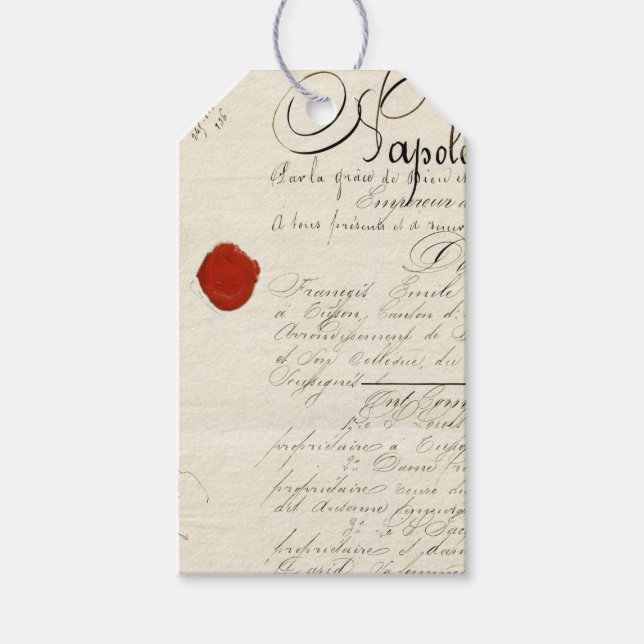 Napole
Par la grâce de Dieu et
Empereur d
À tous présents et à venir
Françis Emile
à Tusson, Canton d
Arrondissement de
et Son Collegue, du
Soussignés
Ont Comp
1º Le S. Louis
propriétaire à Tusso
2º Dame
propriétaire veuve du
dit Ausonne
3º Le S. Jac
propriétaire et dam
David Sa femme